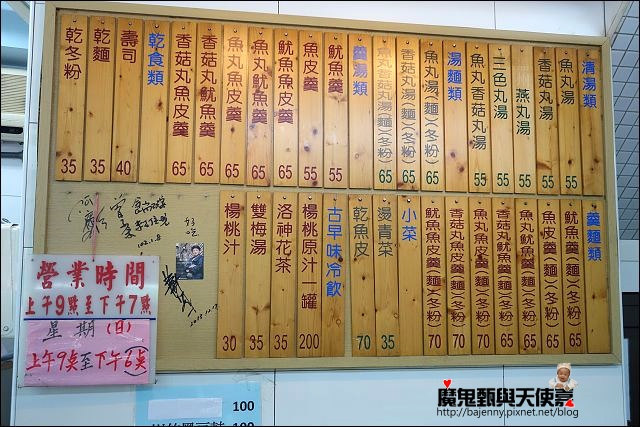 清湯類
魚丸湯 55
香菇丸湯 55
燕丸湯 55
三色丸湯 55
魚丸香菇丸湯 55
湯麵類
魚丸湯(麵)(冬粉) 55
香菇丸湯(麵)(冬粉) 65
魚丸香菇丸湯(麵)(冬粉) 65
羹湯類
魷魚羹 55
魚皮羹 55
魷魚魚皮羹 55
魚丸魷魚羹 65
魚丸魚皮羹 65
香菇丸魷魚羹 65
香菇丸魚皮羹 65
乾食類
壽司 40
乾麵 35
乾冬粉 35
羹麵類
魷魚羹(麵)(冬粉) 65
魚皮羹(麵)(冬粉) 65
魚丸魷魚羹(麵)(冬粉) 65
魚丸魚皮羹(麵)(冬粉) 65
香菇丸魷魚羹(麵)(冬粉) 70
香菇丸魚皮羹(麵)(冬粉) 70
魷魚魚皮羹(麵)(冬粉) 70
小菜
燙青菜 35
乾魚皮 70
古早味冷飲
楊桃原汁一罐 200
洛神花茶 35
雙梅湯 35
楊桃汁 30
好吃
營業時間
上午9點至下午7點
星期(日)
上午9點至下午6點
100
100
魔鬼甄與天使嘉
http://bajenny.pixnet.net/blog